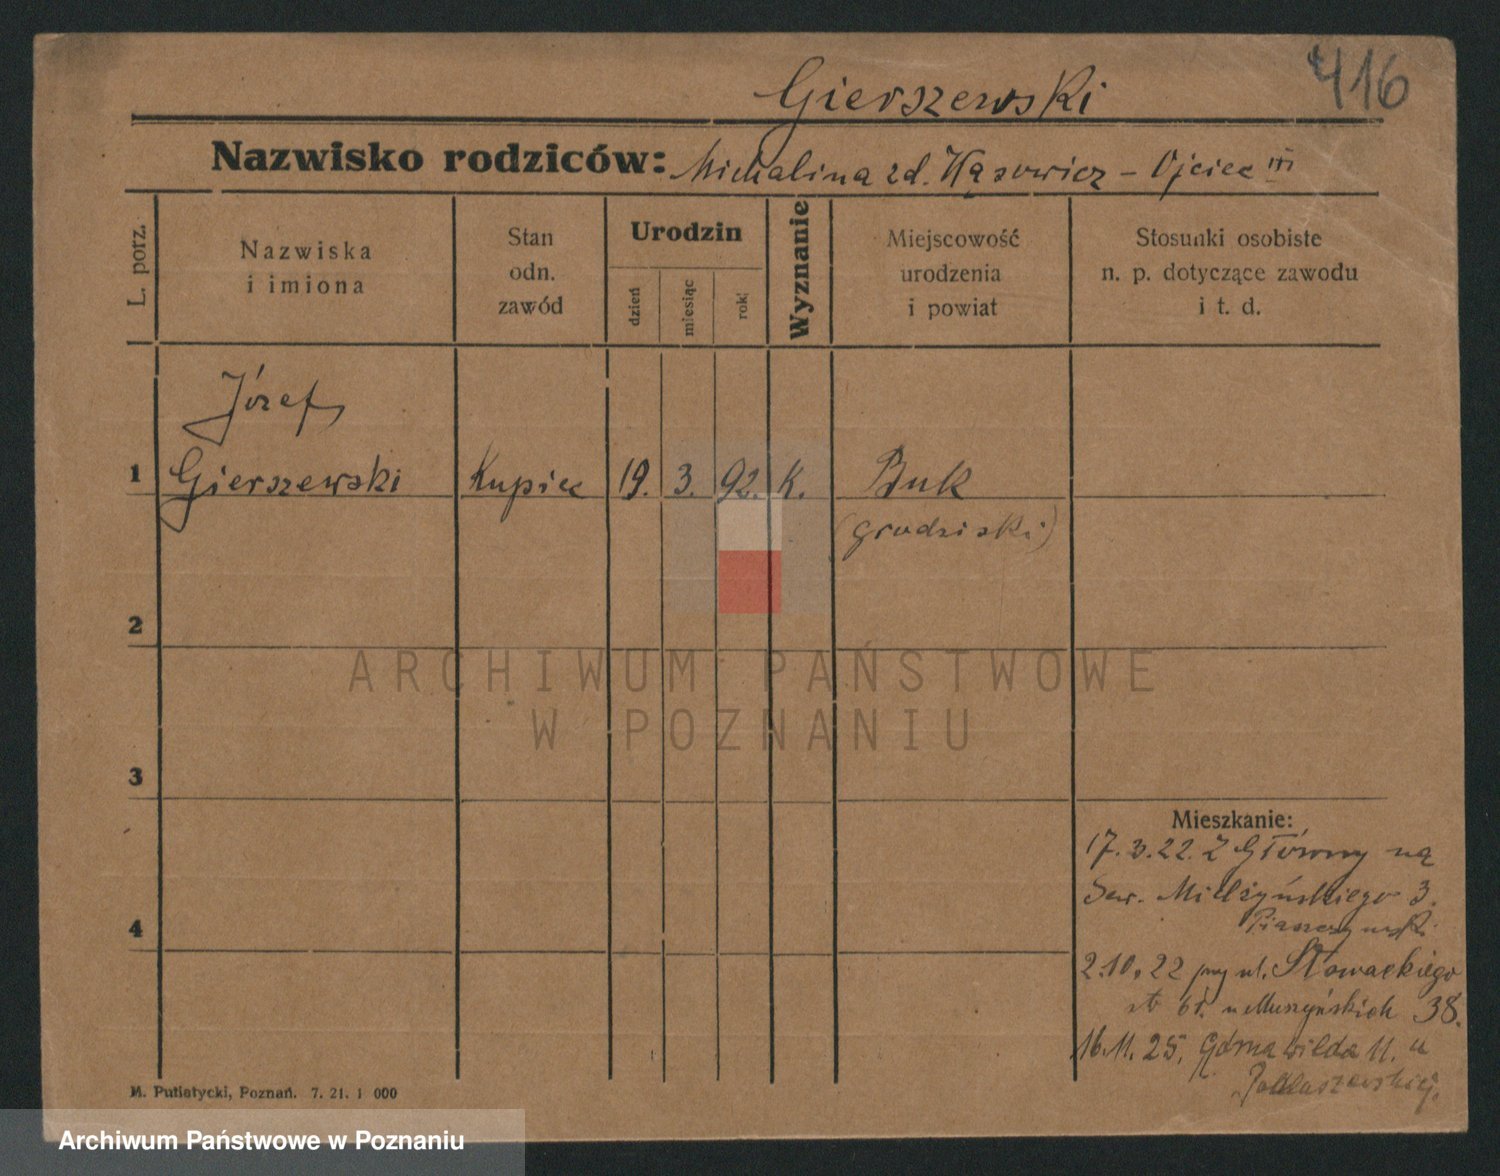 Gierszewski
416
Nazwisko rodziców: Michalina zd. Kąsowicz – Ojciec
L. porz.
Nazwiska
i imiona
Stan
odn.
zawód
Urodzin
dzień
miesiąc
rok
Wyznanie
Miejscowość
urodzenia
i powiat
Stosunki osobiste
n. p. dotyczące zawodu
i t. d.
Józef
1 Gierszewski Kupiec 19. 3. 92. K. Buk
(grodziski)
2
ARCHIWUM PAŃSTWOWE
W POZNANIU
3
Mieszkanie:
17.3.22. Z Główny na
Sew. Mielżyńskiego 3.
4
2.10.22 przy ul. Słowackiego
u Muszyńskich 38.
16.11.25. Górna wilda 11. u
M. Putiatycki, Poznań. 7. 21. 1 000
Archiwum Państwowe w Poznaniu